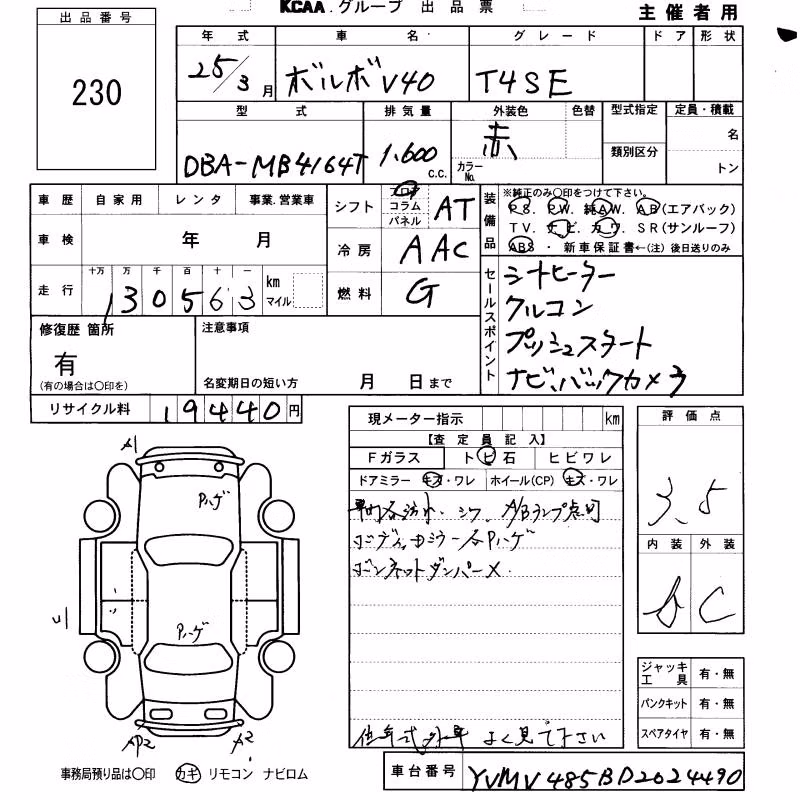 KCAA.グループ 出品票
主催者用
出品番号
230
年式 車名 グレード ドア 形状
25/3月 ボルボV40 T4SE
型式 排気量 外装色 色替 型式指定 定員・積載
DBA-MB4164T 1,600 c.c. 赤 カラーNo. 類別区分 名
トン
車歴 自家用 レンタ 事業.営業車
車検 年 月
走行 十万 万 千 百 十 一
130563 km マイル
シフト コラム パネル AT
冷房 AAC
燃料 G
装備品 ※純正のみ〇印をつけて下さい。
PS. PW. 純AW. AB(エアバック)
TV. ナビ. カワ. SR(サンルーフ)
ABS・新車保証書←(注)後日送りのみ
セールスポイント
シートヒーター
クルコン
プッシュスタート
ナビ、バックカメラ
修復歴 箇所
有
(有の場合は〇印を)
注意事項
名変期日の短い方 月 日まで
リサイクル料 19440円
現メーター指示 km
【査定員記入】
Fガラス トビ石 ヒビワレ
ドアミラー キズ・ワレ ホイール(CP) キズ・ワレ
車内各汚れ・シワ、A/Bランプ点灯
ボディ、ドアミラー各Pハゲ
ボンネットダンパー×
低年式外車 よく見て下さい
評価点
3.5
内装 外装
C
ジャッキ工具 有・無
パンクキット 有・無
スペアタイヤ 有・無
車台番号 YVMV485BD2024490
A1
Pハゲ
Pハゲ
U1
AP2
A2
事務局預り品は〇印 カギ リモコン ナビロム